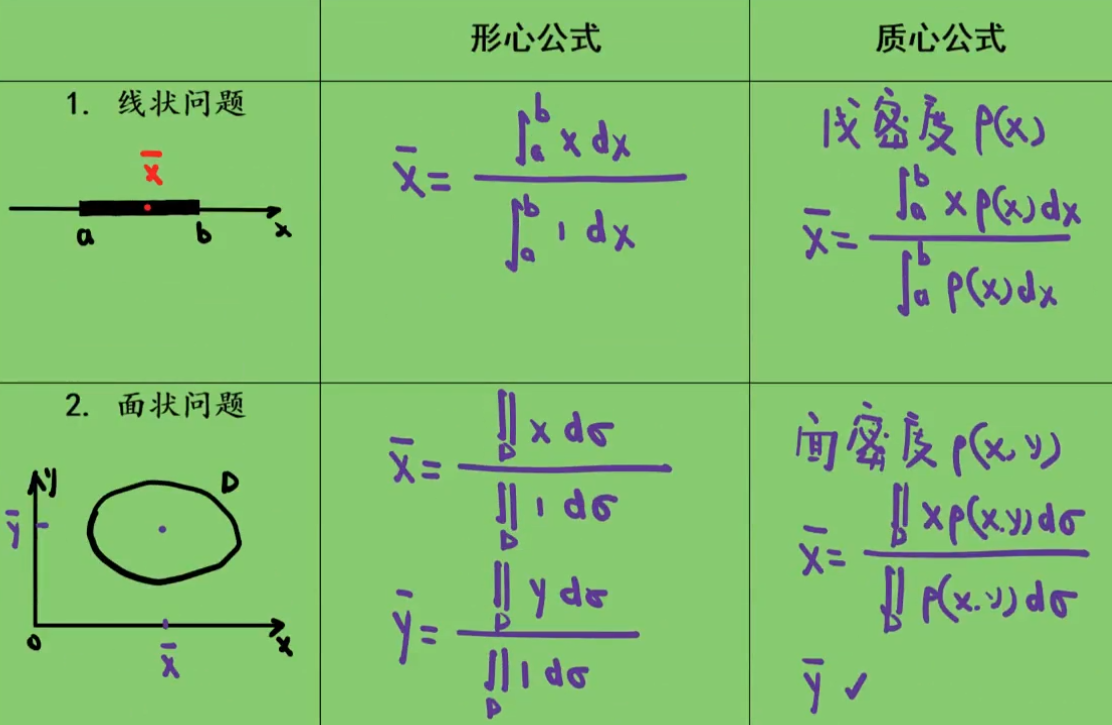 形心公式
质心公式
1. 线状问题
x̄
a b x
x̄ = ∫_a^b x dx / ∫_a^b 1 dx
线密度 ρ(x)
x̄ = ∫_a^b x ρ(x) dx / ∫_a^b ρ(x) dx
2. 面状问题
y D
ȳ
0 x̄ x
x̄ = ∬_D x dσ / ∬_D 1 dσ
ȳ = ∬_D y dσ / ∬_D 1 dσ
面密度 ρ(x,y)
x̄ = ∬_D x ρ(x,y) dσ / ∬_D ρ(x,y) dσ
ȳ ✓